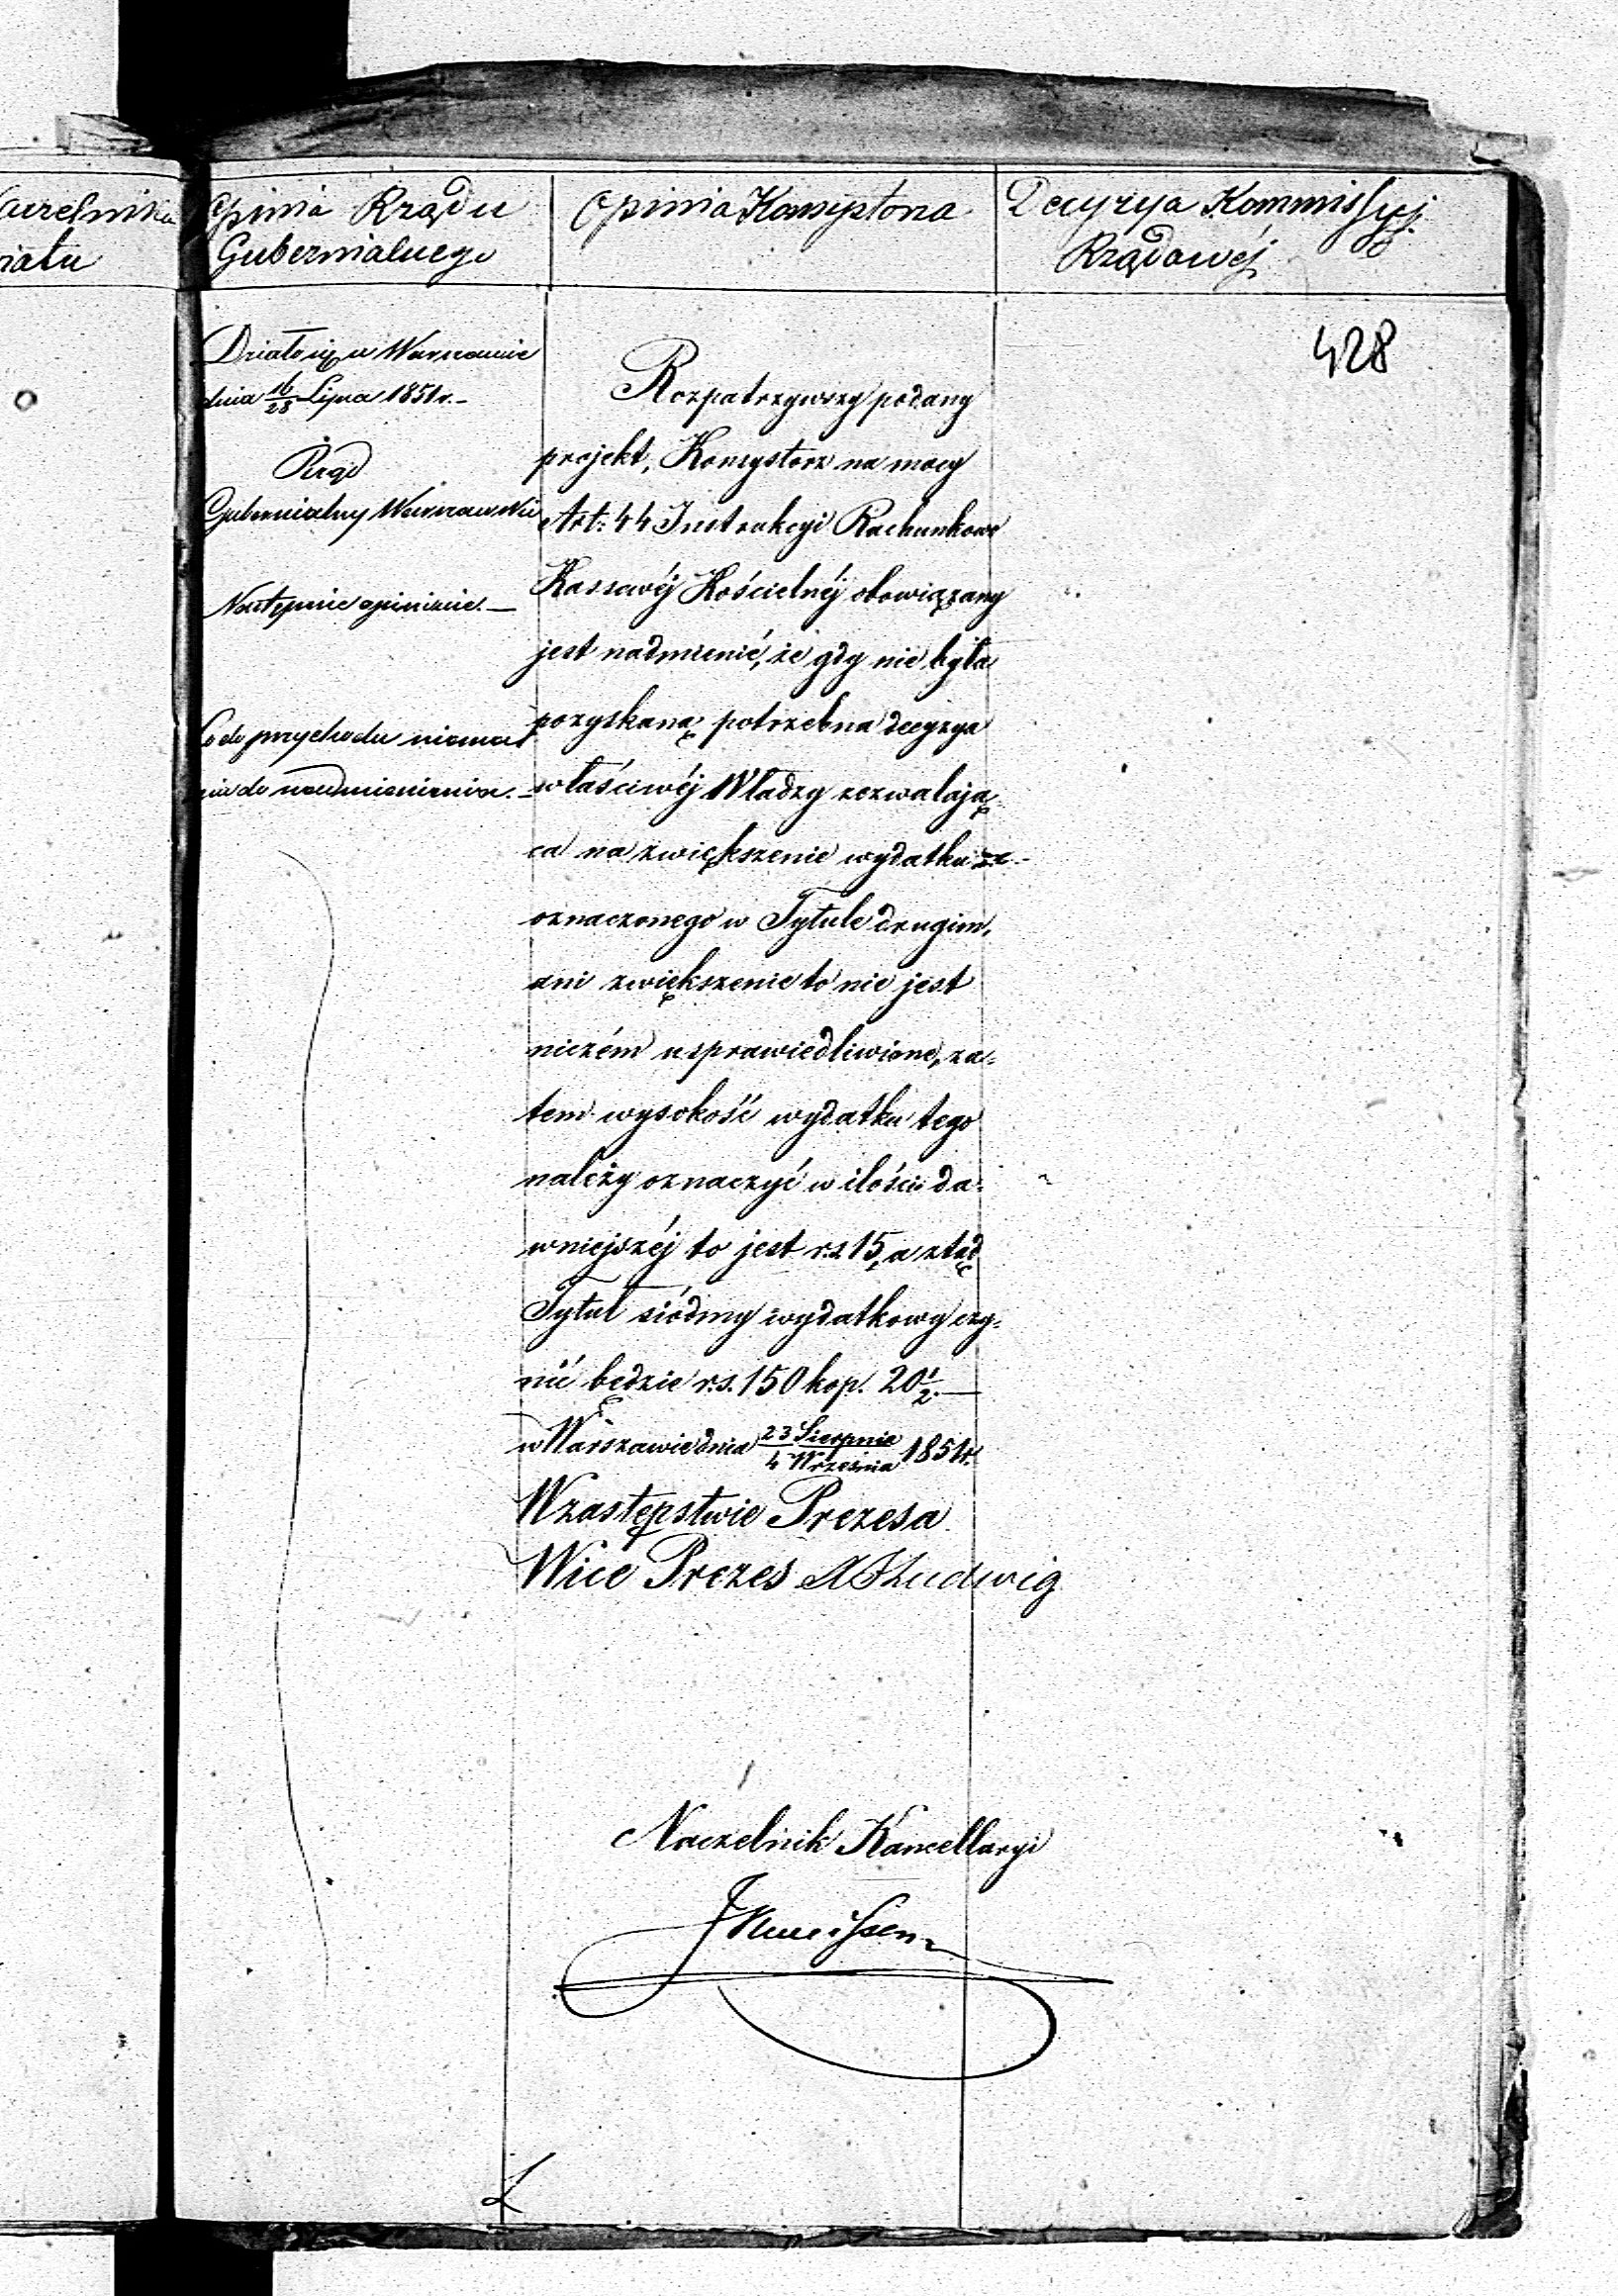 Opinia Rządu
Gubernialnego
Działo się w Warszawie
dnia 16/28 Lipca 1851 r.-
Rząd
Gubernialny Warszawski
Następnie opiniuie.—
Co do przychodu niema
nic do nadmienienia.-
Opinia Konsystorza
Rozpatrzywszy podany
projekt, Konsystorz na mocy
Art: 44 Instrukcyi Rachunkowo
Kassowéj Kościelnéj obowiązany
jest nadmienić, że gdy nie była
pozyskaną potrzebna decyzya
właściwéj Władzy zezwalają-
ca na zwiększenie wydatku
oznaczonego w Tytule drugim,
ani zwiększenie to nie jest
niczém usprawiedliwione, za-
tem wysokość wydatku tego
należy oznaczyć w ilości da-
wniejszéj to jest r.s. 15, a ztąd
Tytuł siódmy wydatkowy czy-
nić będzie r.s. 150 kop. 20 1/2.—
w Warszawie dnia 23 Sierpnia/4 Września 1851 r.
W zastępstwie Prezesa
Wice Prezes Ludwig
Naczelnik Kancellaryi
Decyzya Kommissyi
Rządowéj
428